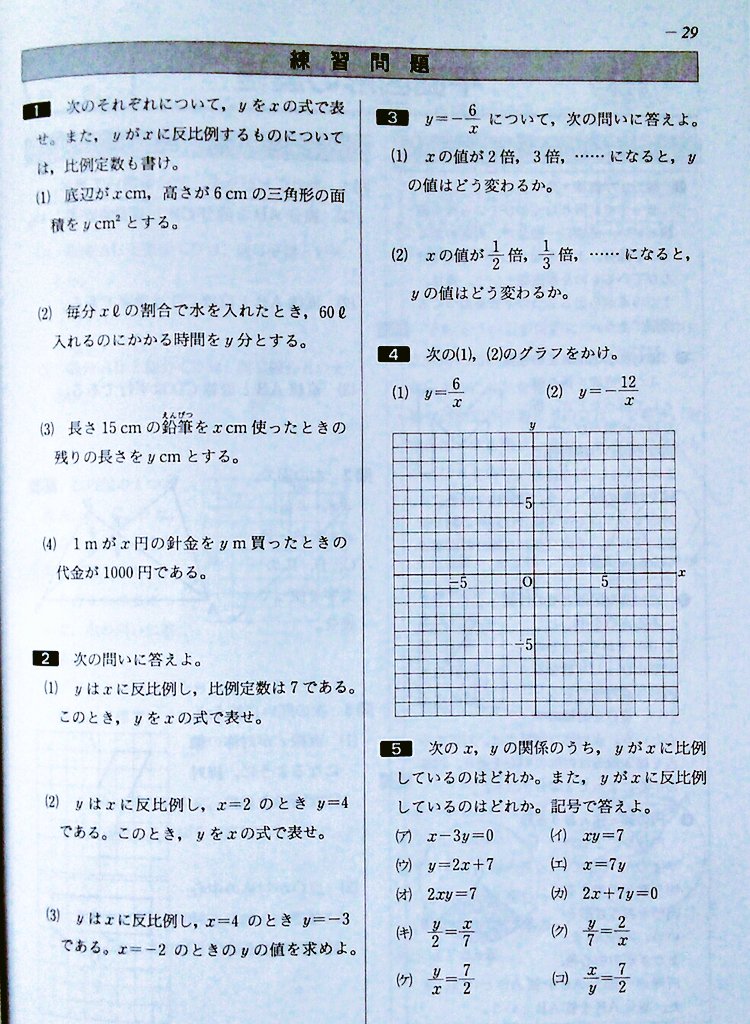 — 29
練習問題
1 次のそれぞれについて，yをxの式で表
せ。また，yがxに反比例するものについて
は，比例定数も書け。
(1) 底辺がxcm，高さが6cmの三角形の面
積をycm²とする。
(2) 毎分xℓの割合で水を入れたとき，60ℓ
入れるのにかかる時間をy分とする。
えんぴつ
(3) 長さ15cmの鉛筆をxcm使ったときの
残りの長さをycmとする。
(4) 1mがx円の針金をym買ったときの
代金が1000円である。
2 次の問いに答えよ。
(1) yはxに反比例し，比例定数は7である。
このとき，yをxの式で表せ。
(2) yはxに反比例し，x=2のときy=4
である。このとき，yをxの式で表せ。
(3) yはxに反比例し，x=4のときy=-3
である。x=-2のときのyの値を求めよ。
3 y=-6/x について，次の問いに答えよ。
(1) xの値が2倍，3倍，……になると，y
の値はどう変わるか。
(2) xの値が1/2倍，1/3倍，……になると，
yの値はどう変わるか。
4 次の(1)，(2)のグラフをかけ。
(1) y=6/x (2) y=-12/x
y
5
-5 O 5 x
-5
5 次のx，yの関係のうち，yがxに比例
しているのはどれか。また，yがxに反比例
しているのはどれか。記号で答えよ。
(ア) x-3y=0 (イ) xy=7
(ウ) y=2x+7 (エ) x=7y
(オ) 2xy=7 (カ) 2x+7y=0
(キ) y/2=x/7 (ク) y/7=2/x
(ケ) y/x=7/2 (コ) x/y=7/2